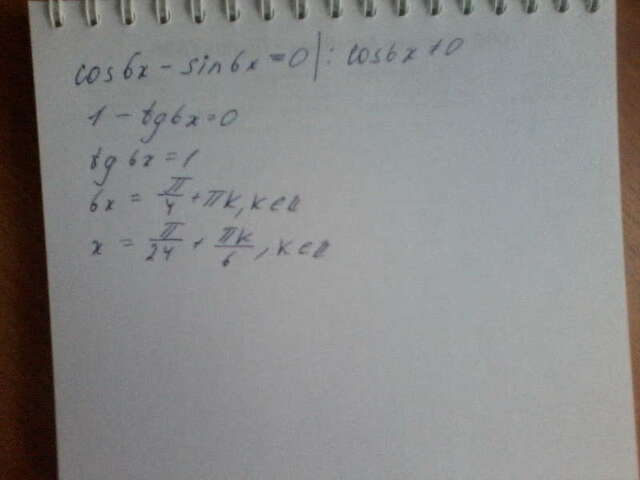 cos6x - sin6x = 0 | : cos6x ≠ 0
1 - tg6x = 0
tg 6x = 1
6x = π/4 + πk, k∈Z
x = π/24 + πk/6, k∈Z